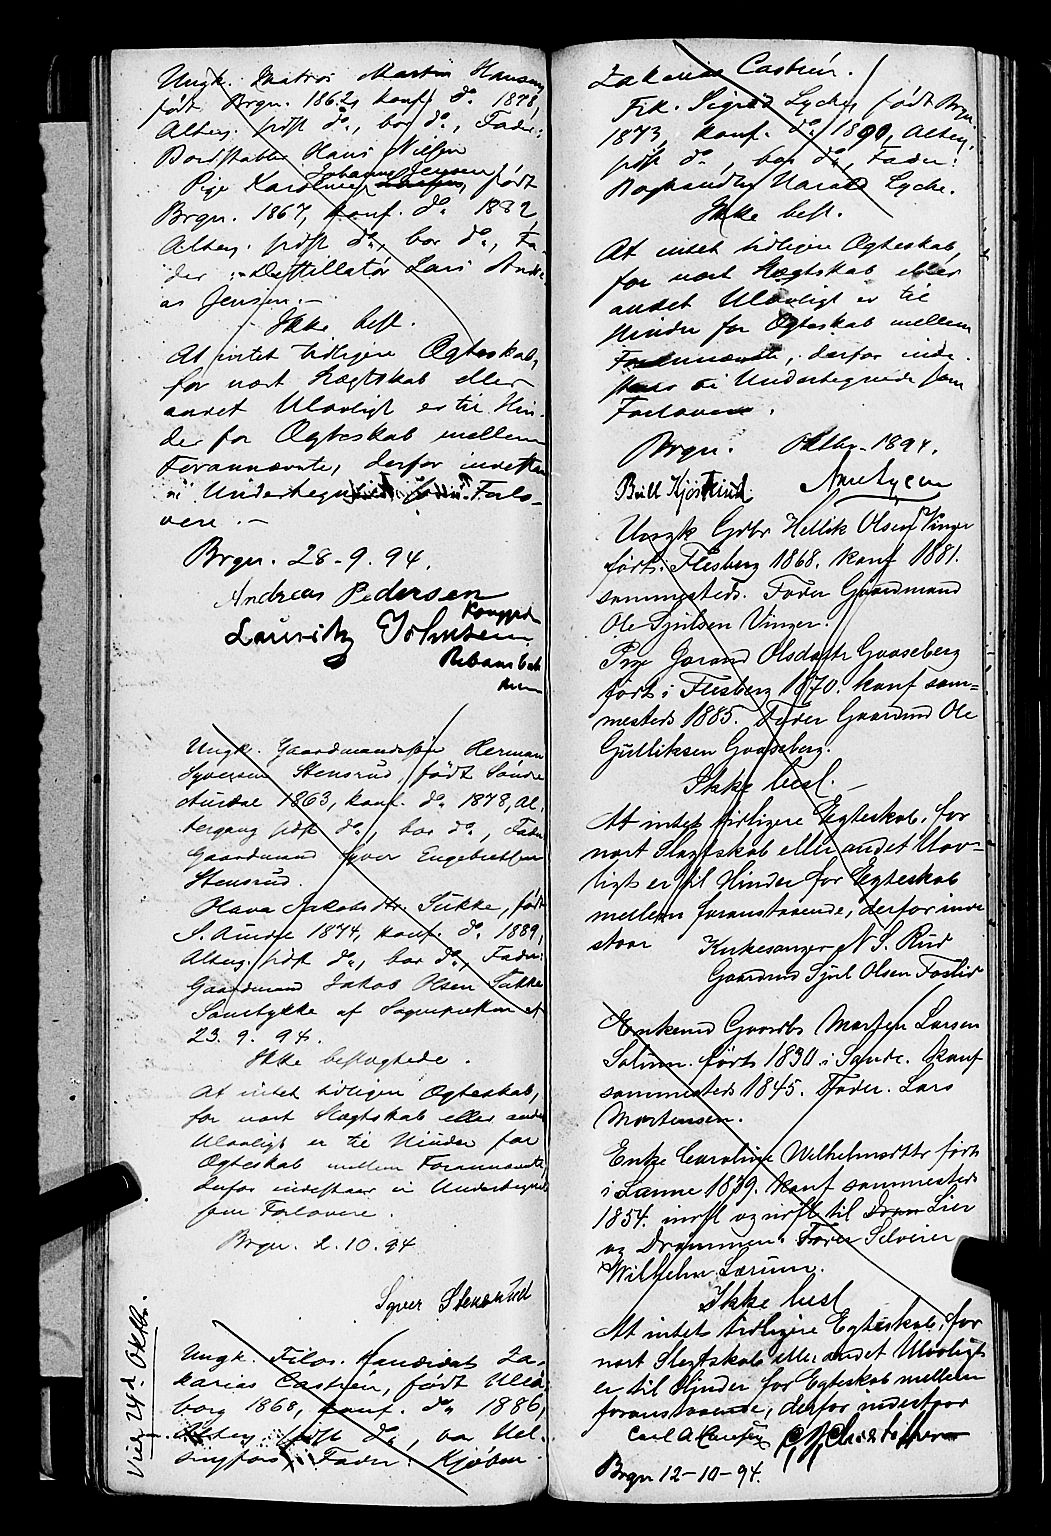 Ungk. Matros Martin Hansen
født Brgn. 1862, konf. do. 1878,
Alterg. sidst do., bor do., Fader:
Bordstabler Hans Nilsen
Johanne Jensen
Pige Karoline født
Brgn. 1867, konf. do. 1882,
Alterg. sidst do., bor do., Fa-
der: Destillatør Lars Andre-
as Jensen.-
Ikke besl.
At intet tidligere Ægteskab,
for nært Slægtskab eller
andet Ulovligt er til Hin-
der for Ægteskab mellem
Forannævnte, derfor indestaa
vi Undertegnede som Forlo-
vere.-
Brgn. 28-9.94.
Andreas Pedersen
Lauritz Johnsen
Ungk. Gaardmandssøn Herman
Syversen Stensrud, født Søndre
Aurdal 1863, konf. do. 1878, Al-
tergang sidst do., bor do., Fader
Gaardmand Syver Engebretsen
Stensrud.
Olava Jakobsdtr. Sukke, født
S. Aurdal 1874, konf. do. 1889,
Alterg. sidst do., bor do., Fader:
Gaardmand Jakob Olsen Sukke
Samtykke af Sognepresten af
23. 9. 94.
Ikke beslægtede.
At intet tidligere Ægteskab,
for nært Slægtskab eller andet
Ulovligt er til Hinder for
Ægteskab mellem Forannævnte,
derfor indestaar vi Undertegnede
som Forlovere.
Brgn. 2.10.94
Syver Stensrud
Viet 24de Oktbr.
Ungk. Filos. Kandidat Za-
karias Castrén, født Uleå-
borg 1868, konf. do. 1886,
Alterg. sidst do., bor Hel-
singfors, Fader: Kjøbm.
Zakarias Castrén.
Frk. Sigrid Lyche, født Brgn.
1873, konf. do. 1890, Alterg.
sidst do., bor do., Fader:
Boghandler Harald Lyche.
Ikke besl.
At intet tidligere Ægteskab,
for nært Slægtskab eller
andet Ulovligt er til
Hinder for Ægteskab mellem
Forannævnte, derfor inde-
staar vi Undertegnede som
Forlovere.
Brgn. Oktbr. 1894.
Ungk Gdbr Hellik Olsen Vinger
født i Flesberg 1868. konf 1881.
sammesteds. Fader Gaardmand
Ole Sjulsen Vinger.
Pige Jorand Olsdatter Gaaseberg
født i Flesberg 1870. konf sam-
mesteds 1885. Fader Gaardmd Ole
Gulliksen Gaaseberg.
Ikke besl.
At intet tidligere Egteskab, for
nært Slegtskab eller andet Ulov-
ligt er til Hinder for Egteskab
mellem foranstaaende, derfor inde
staar
Kirkesanger N S. Rud
Gaardmd Sjul Olsen Foslid
Enkemd Gaardbr Morten Larsen
Solum. født 1830 i Sande. konf
sammesteds 1845. Fader. Lars
Mortensen.
Enke Caroline Wilhelmsdtr født
i Sanne 1839. konf sammesteds
1854. indfl og udfl til Lier
og Drammen. Fader Selveier
Wilhelm Lærum.
Ikke besl
At intet tidligere Egteskab, for
nært Slegtskab eller andet Ulovligt
er til Hinder for Egteskab mellem
foranstaaende, derfor indestaar
Brgn 12-10-94.